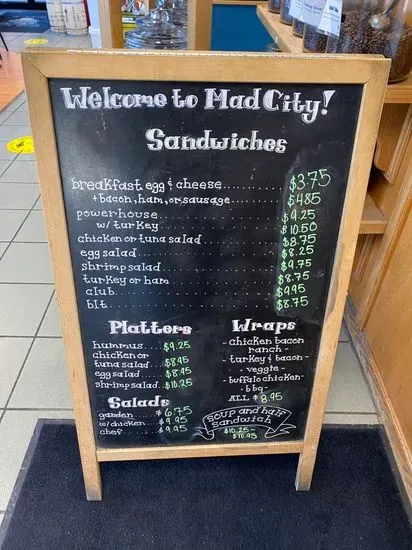 Welcome to Mad City!
Sandwiches
breakfast egg & cheese.......... $3.75
+ bacon, ham, or sausage......... $4.85
powerhouse................... $9.25
w/ turkey.................... $10.50
chicken or tuna salad........... $8.75
egg salad.................... $8.25
shrimp salad................. $9.75
turkey or ham................ $8.75
club........................ $9.95
blt......................... $8.75
Platters
hummus.... $9.25
chicken or
tuna salad... $8.95
egg salad.... $8.95
shrimp salad.... $10.25
Salads
garden.... $6.75
w/chicken.... $9.95
chef.... $9.95
Wraps
- chicken bacon
ranch -
- turkey & bacon -
- veggie -
- buffalo chicken -
- bbq -
ALL $8.95
Soup and half
Sandwich
$10.25 -
$10.95